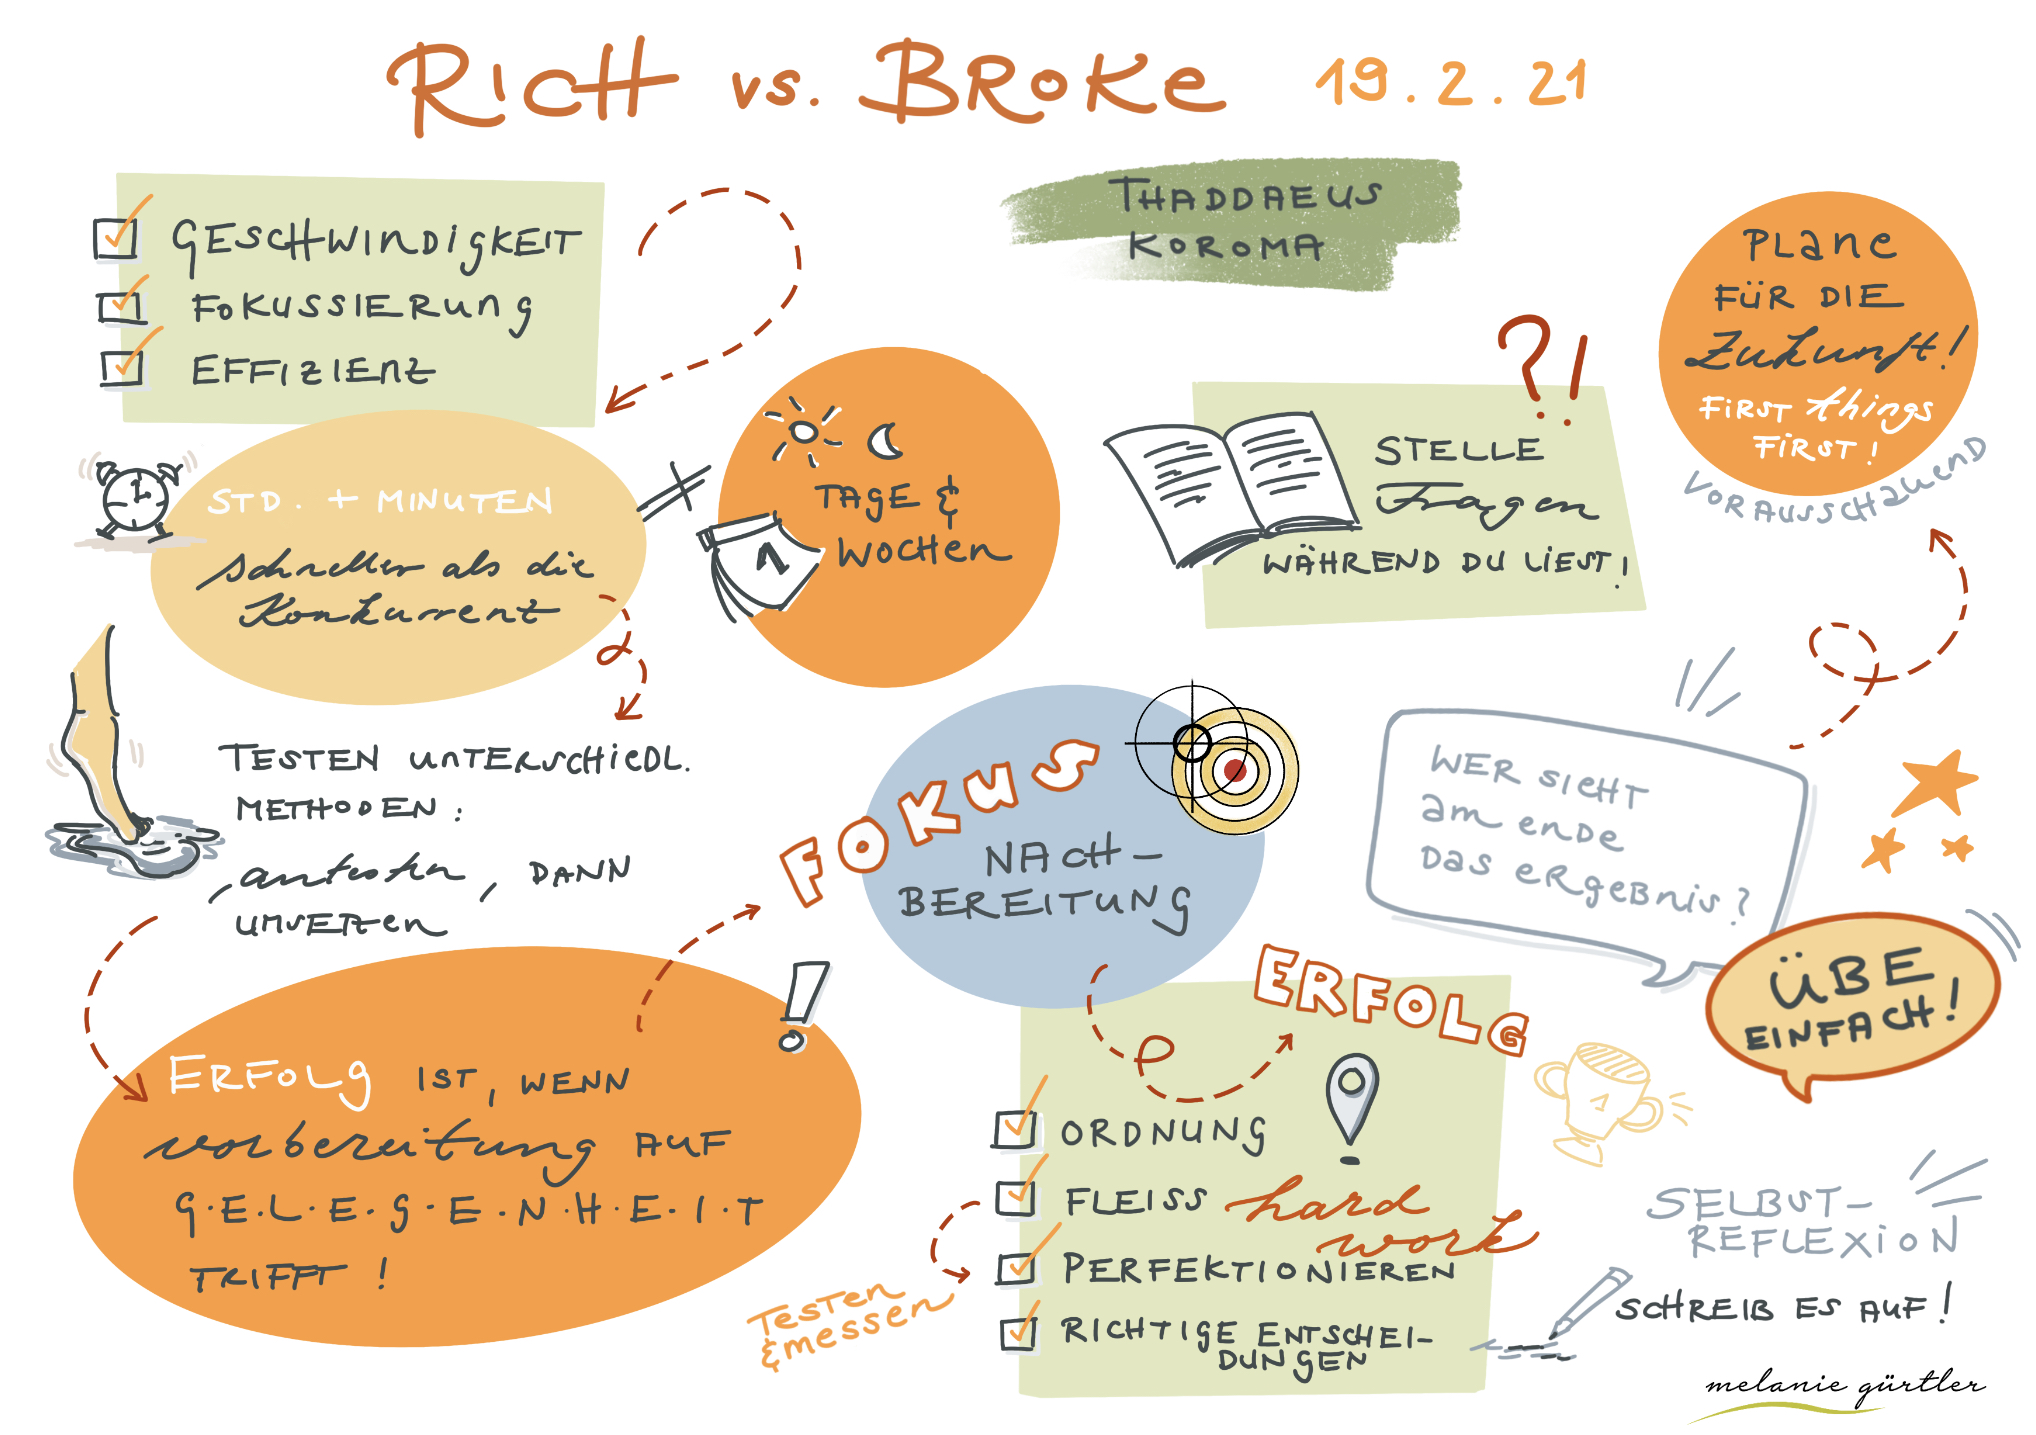 RICH vs. BROKE 19.2.21
THADDAEUS
KOROMA
GESCHWINDIGKEIT
FOKUSSIERUNG
EFFIZIENZ
STD. + MINUTEN
schneller als die
Konkurrenz
≠
TAGE &
WOCHEN
1
?!
STELLE
Fragen
WÄHREND DU LIEST!
PLANE
FÜR DIE
Zukunft!
FIRST things
FIRST!
VORAUSSCHAUEND
TESTEN UNTERSCHIEDL.
METHODEN:
,antesten, DANN
UMSETZEN
FOKUS
NACH-
BEREITUNG
WER SIEHT
am ENDE
DAS ERGEBNIS?
ÜBE
EINFACH!
ERFOLG IST, WENN
vorbereitung AUF
G.E.L.E.G.E.N.H.E.I.T
TRIFFT!
!
ERFOLG
ORDNUNG
FLEISS hard
work
PERFEKTIONIEREN
RICHTIGE ENTSCHEI-
DUNGEN
TESTEN
& messen
1
SELBST-
REFLEXION
SCHREIB ES AUF!
melanie gürtler